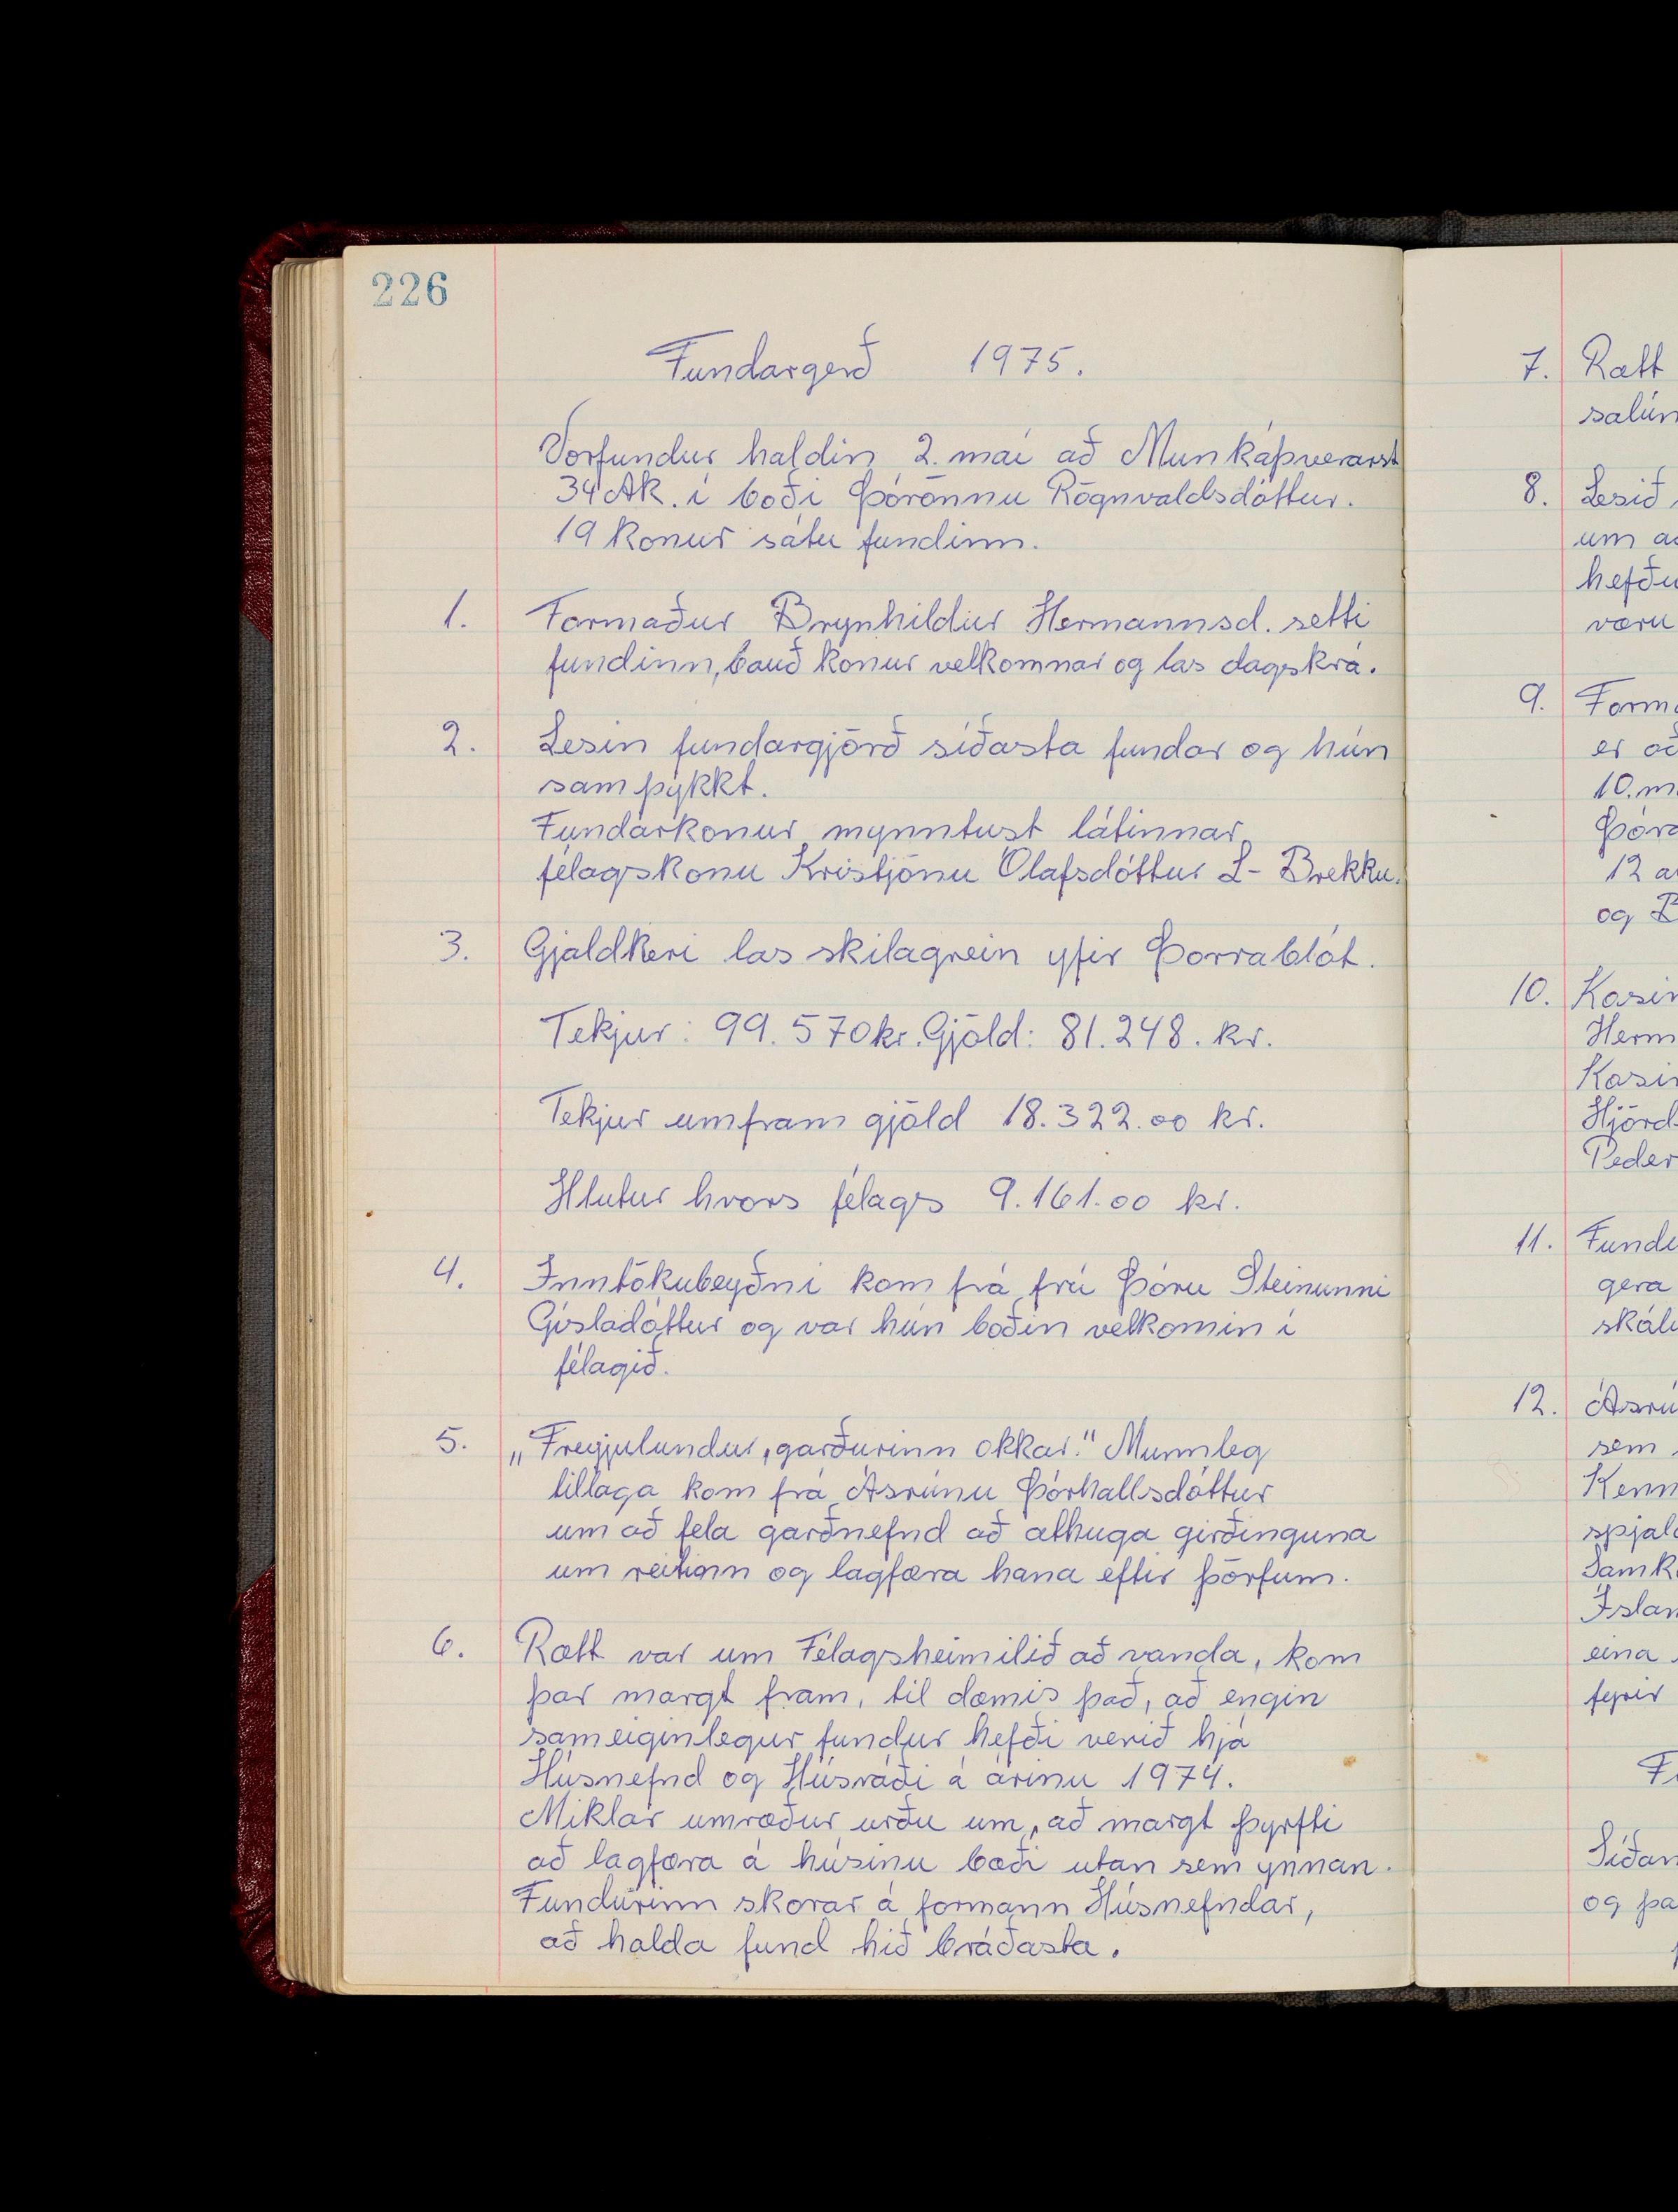 226
Fundargerð 1975.
Vorfundur haldin 2. maí að Munkaþverarst
34 Ak. í boði Þórönnu Rögnvaldsdóttur.
19 konur sátu fundinn.
1. Formaður Brynhildur Hermannsd. setti
fundinn, bauð konur velkomnar og las dagskrá.
2. Lesin fundargjörð síðasta fundar og hún
samþykkt.
Fundarkonur mynntust látinnar
félagskonu Kristjönu Ólafsdóttur L- Brekku.
3. Gjaldkeri las skilagrein yfir Þorrablót.
Tekjur: 99.570 kr. Gjöld: 81.248. kr.
Tekjur umfram gjöld 18.322.00 kr.
Hlutur hvors félags 9.161.00 kr.
4. Inntökubeyðni kom frá frú Þóru Steinunni
Gísladóttur og var hún boðin velkomin í
félagið.
5. „Freyjulundur, garðurinn okkar." Munnleg
tillaga kom frá Ásrúnu Þórhallsdóttur
um að fela garðnefnd að athuga girðinguna
um reitinn og lagfæra hana eftir þörfum.
6. Rætt var um Félagsheimilið að vanda, kom
þar margt fram, til dæmis það, að engin
sameiginlegur fundur hefði verið hjá
Húsnefnd og Húsráði á árinu 1974.
Miklar umræður urðu um, að margt þyrfti
að lagfæra á húsinu bæði utan sem ynnan.
Fundurinn skorar á formann Húsnefndar,
að halda fund hið bráðasta.
7. Rætt
salún
8. Lesið
um að
hefðu
væru
9. Forma
er að
10. m
Þóra
12 a
og B
10. Kosin
Herm
Kosin
Hjörd
Peder
11. Fundu
gera
skál
12. Ásrú
sem
Kenn
spjal
Samk
Íslan
eina
fyrir
F
Síðan
og þa